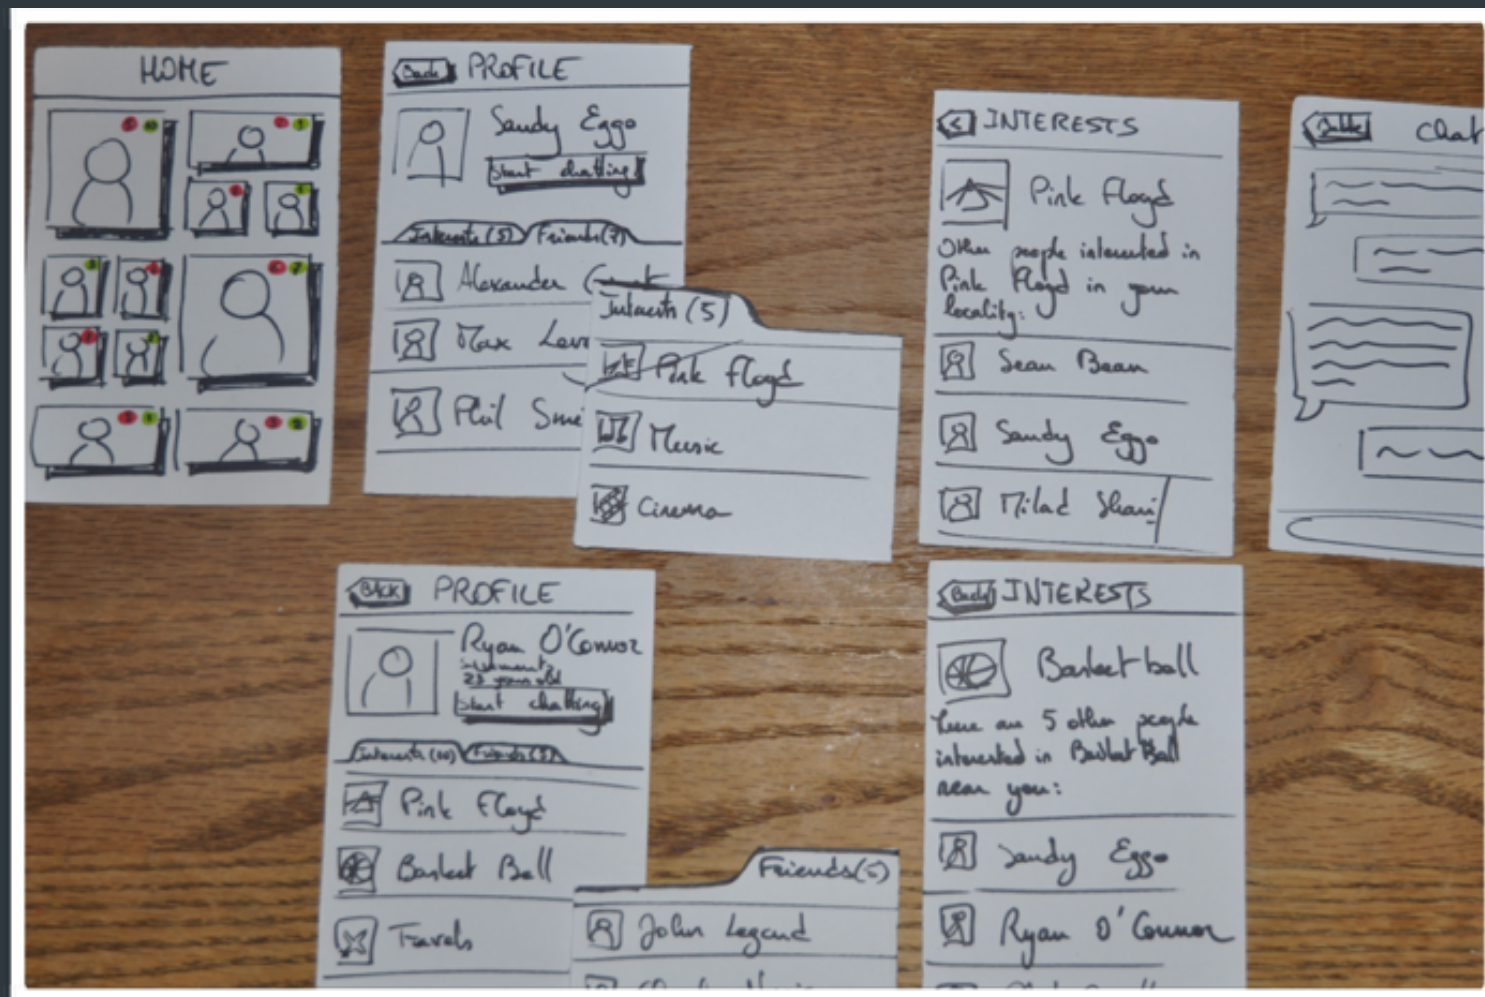 HOME
Back PROFILE
Sandy Eggo
Start chatting
Interests (5) Friends (7)
Alexander
Max
Phil
Interests (5)
Pink Floyd
Music
Cinema
< INTERESTS
Pink Floyd
Other people interested in
Pink Floyd in your
locality:
Sean Bean
Sandy Eggo
Milad
Chat
BACK PROFILE
Ryan O'Connor
25 years old
Start chatting
Interests (10) Friends (5)
Pink Floyd
Basket Ball
Travels
Friends (5)
John Legend
Back INTERESTS
Basket ball
There are 5 other people
interested in Basket Ball
near you:
Sandy Eggo
Ryan O'Connor